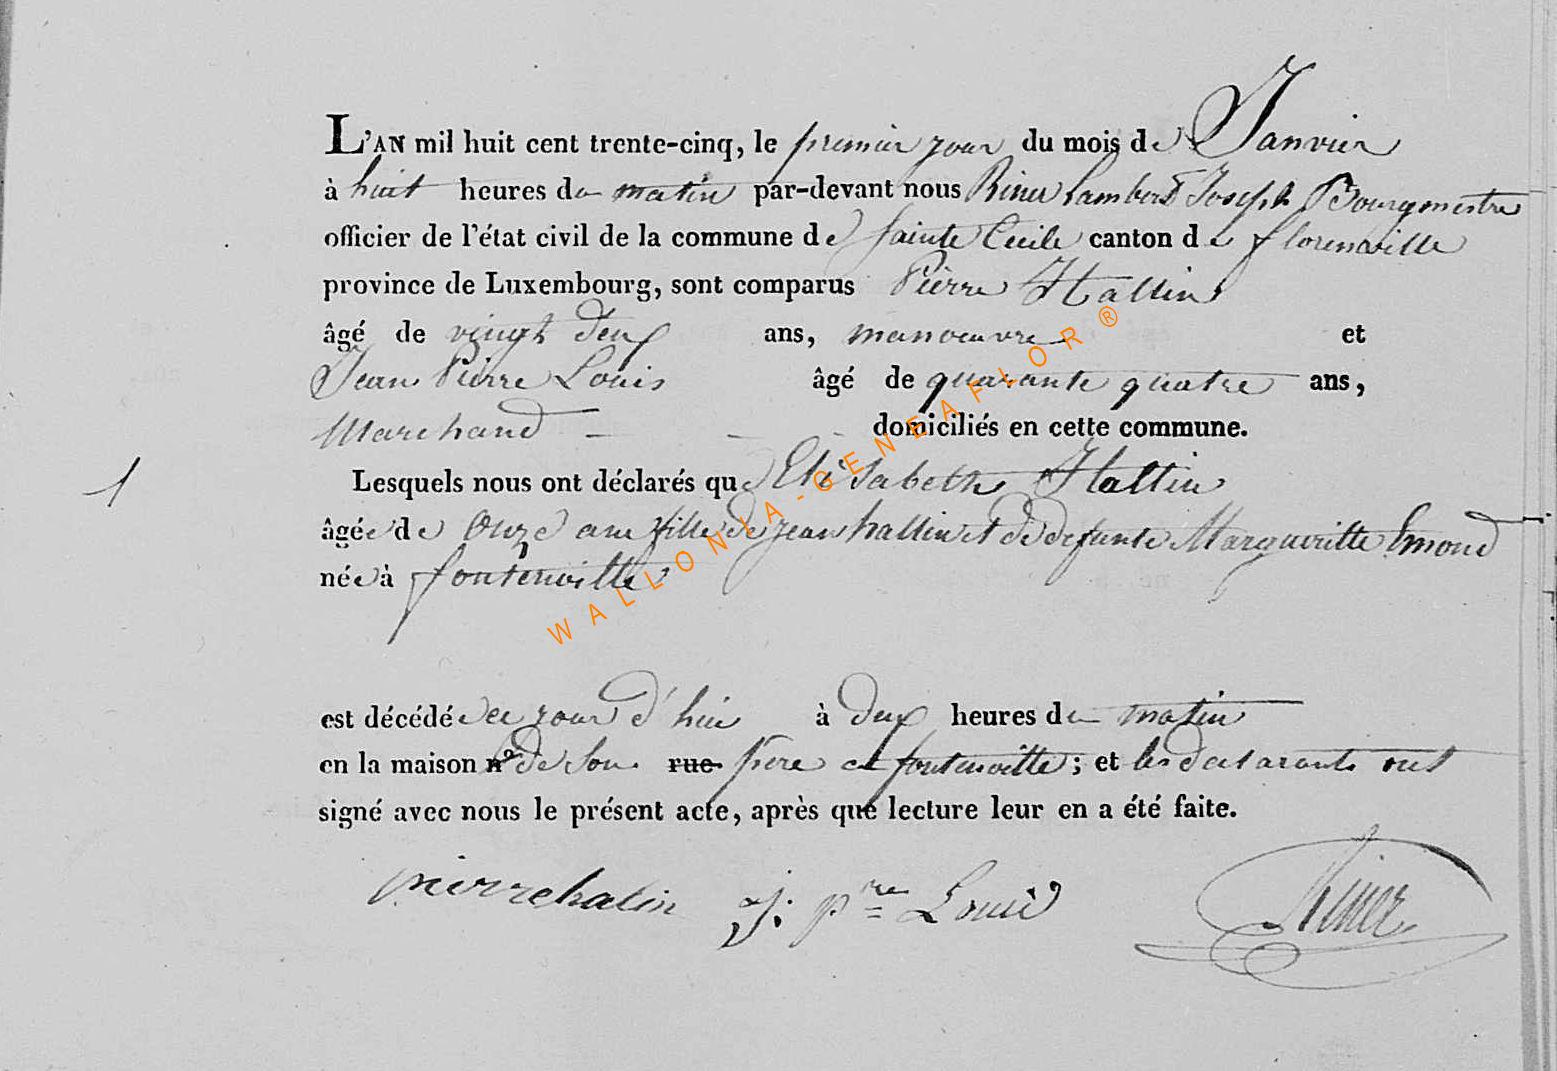 L'AN mil huit cent trente-cinq, le premier jour du mois de Janvier
à huit heures du matin par-devant nous Riner Lambert Joseph Bourgmestre
officier de l'état civil de la commune de Sainte Cecile canton de florenville
province de Luxembourg, sont comparus Pierre Hallin
âgé de vingt deux ans, manoeuvre et
Jean Pierre Louis âgé de quarante quatre ans,
Marchand domiciliés en cette commune.
1 Lesquels nous ont déclarés que Elisabeth Hallin
âgée de Onze ans fille de jean hallin et de defunte Margueritte Emond
née à fontenoille
est décédée ce jour d'hui à deux heures du matin
en la maison n° de son rue père a fontenoille ; et les declarants ont
signé avec nous le présent acte, après que lecture leur en a été faite.
pierre halin J: p^re Louis Riner
WALLONIA-GENEAFLOR®